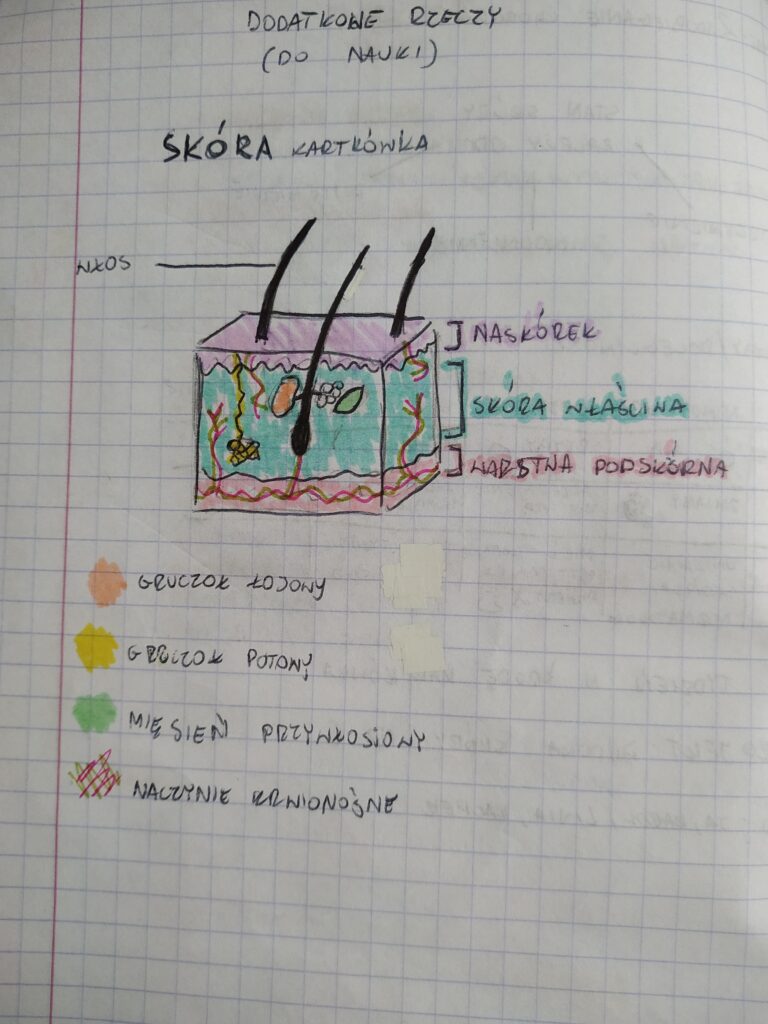 DODATKOWE RZECZY
(DO NAUKI)
SKÓRA KARTKÓWKA
WŁOS
NASKÓREK
SKÓRA WŁAŚCIWA
WARSTWA PODSKÓRNA
GRUCZOŁ ŁOJOWY
GRUCZOŁ POTOWY
MIĘSIEŃ PRZYWŁOSIOWY
NACZYNIE KRWIONOŚNE